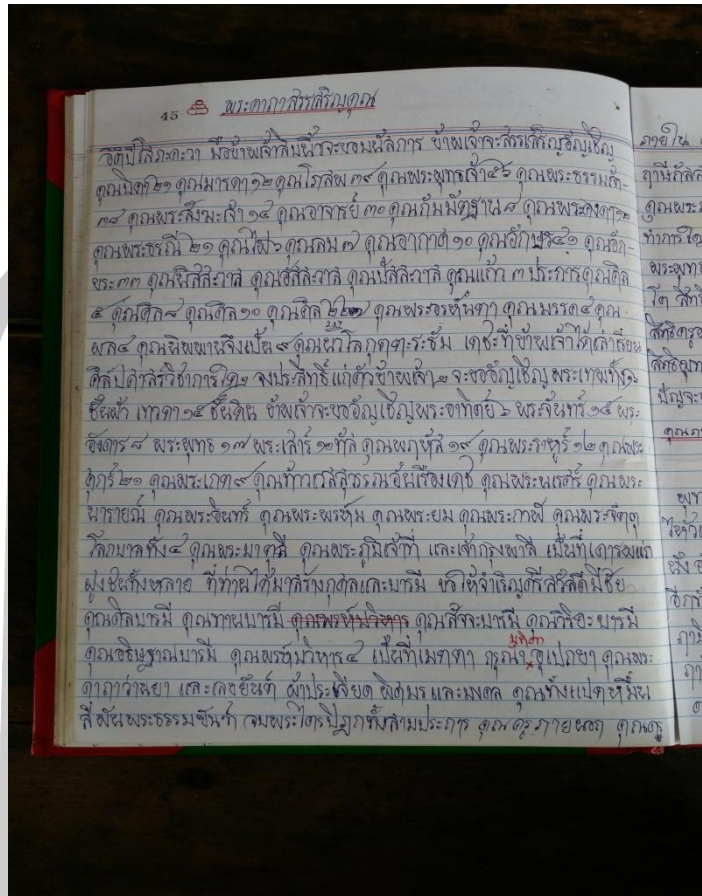 45 พระคาถาสรรเสริญคุณ
อิติปิโสภะคะวา มือข้าพเจ้าสิบนิ้วจะยอมนัสการ ข้าพเจ้าจะสรรเสริญอัญเชิญ
คุณบิดา ๒๑ คุณมารดา ๑๒ คุณโภสพ ๓๙ คุณพระพุทธเจ้า ๕๖ คุณพระธรรมเจ้า-
๓๘ คุณพระสังฆะเจ้า ๑๔ คุณอาจารย์ ๓๐ คุณกัมมัฏฐาน ๘ คุณพระคงคา ๑๒
คุณพระธรณี ๒๑ คุณไฟ ๖ คุณลม ๗ คุณอากาศ ๑๐ คุณอักษร ๔๑ คุณอัก-
ขระ ๓๓ คุณนิสสะวาส คุณอัสสะวาส คุณปัสสะวาส คุณแก้ว ๓ ประการ คุณศีล
๕ คุณศีล ๘ คุณศีล ๑๐ คุณศีล ๒๒๗ คุณพระอรหันตา คุณมรรค ๔ คุณ
227
ผล ๔ คุณนิพพานจึงเป็น ๙ คุณนาโลกุตตะระธัม เดชะที่ข้าพเจ้าได้เล่าเรียน
ศิลปศาสตร์วิชาการใดๆ จงประสิทธิ์แก่ตัวข้าพเจ้าๆ จะขออัญเชิญพระเทพทั้ง ๑๖
ชั้นฟ้า เทวดา ๑๕ ชั้นดิน ข้าพเจ้าจะขออัญเชิญพระอาทิตย์ ๖ พระจันทร์ ๑๕ พระ
อังคาร ๘ พระพุทธ ๑๗ พระเสาร์ ๑๐ทัส คุณพฤหัส ๑๙ คุณพระราหูร์ ๑๒ คุณพระ
ศุกร์ ๒๑ คุณพระเกตุ ๙ คุณท้าวเวสสุวรรณอันเรืองเดช คุณพระนเรศร์ คุณพระ
นารายณ์ คุณพระอินทร์ คุณพระพรหม คุณพระยม คุณพระกาฬ คุณพระจัตุ
โลกบาลทั้ง ๔ คุณพระมาตุลี คุณพระภูมิเจ้าที่ และเจ้ากรุงพาลี เป็นที่เคารพแก่
ฝูงชนทั้งหลาย ที่ท่านได้มาสร้างกุศลและบารมี ขอให้จำเริญศรีสวัสดีมีชัย
คุณศีลบารมี คุณทานบารมี คุณพรหมวิหาร คุณสัจจะบารมี คุณวิริยะบารมี
มุทิตา
คุณอธิษฐานบารมี คุณพรหมวิหาร ๔ เป็นที่เมตตา กรุณา อุเปกขา คุณพระ
คาถาว่านยา และเลขยันต์ ผ้าประเจียด พิศมร และมงคล คุณทั้งแปดหมื่น
สี่พันพระธรรมขันท์ จบพระไตรปิฎกทั้งสามประการ คุณครูภายนอก คุณครู
ภายใน
คุณพระ
พระพุทธ